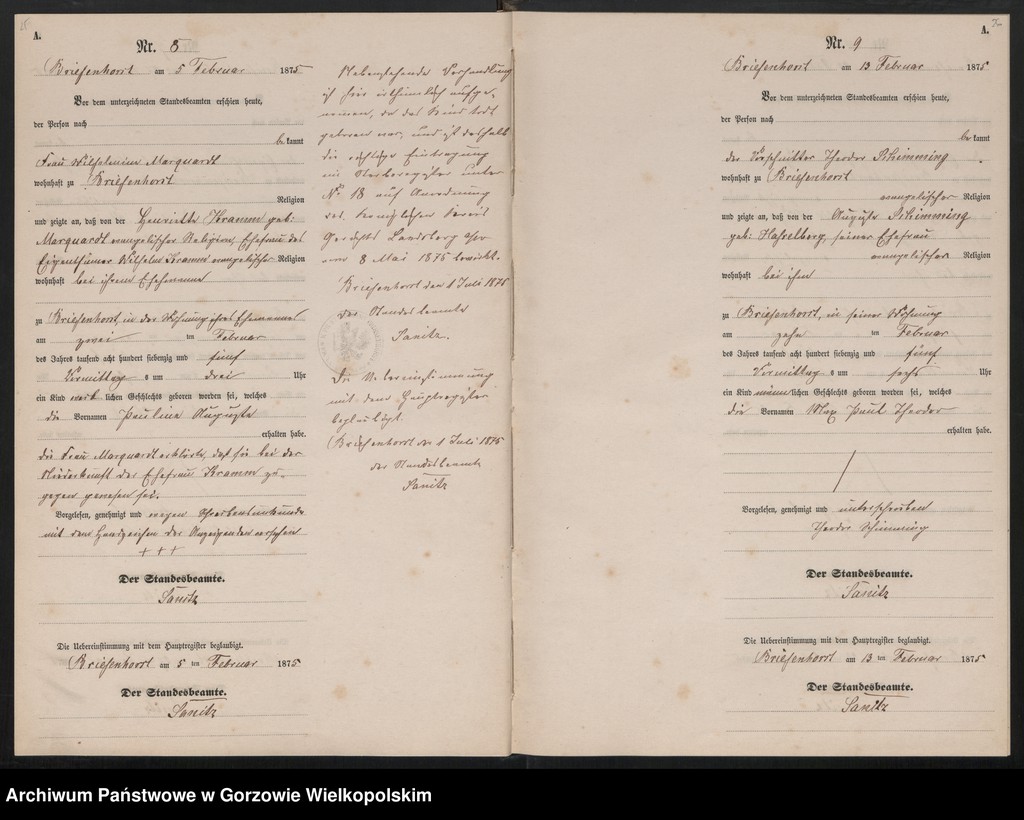 A.
Nr. 8
Briesenhorst am 5 Februar 1875
Vor dem unterzeichneten Standesbeamten erschien heute,
der Person nach
bekannt
Frau Wilhelmine Marquardt
wohnhaft zu Briesenhorst
Religion
und zeigte an, daß von der Henriette Kramm geb:
Marquardt evangelischer Religion, Ehefrau des
Eigenthümer Wilhelm Kramm evangelischer Religion
wohnhaft bei ihrem Ehemanne
zu Briesenhorst, in der Wohnung ihres Ehemannes
am zwei ten Februar
des Jahres tausend acht hundert siebenzig und fünf
Vormittag s um drei Uhr
ein Kind weiblichen Geschlechts geboren worden sei, welches
die Vornamen Pauline Auguste
erhalten habe.
die Frau Marquardt erklärte, daß sie bei der
Niederkunft der Ehefrau Kramm zu-
gegen gewesen sei.
Vorgelesen, genehmigt und wegen Schreibensunkunde
mit dem Handzeichen der Anzeigenden versehen
+ + +
Der Standesbeamte.
Sanitz
Die Uebereinstimmung mit dem Hauptregister beglaubigt.
Briesenhorst am 5 ten Februar 1875
Der Standesbeamte.
Sanitz
Nebenstehende Verhandlung
ist hier irthümlich aufge-
nommen, da das Kind todt
geboren war, und ist deshalb
die Eintragung
im Sterberegister unter
No 18 auf Anordnung
des Königlichen Kreis
Gerichts Landsberg a/w
vom 8 Mai 1875 bewirkt.
Briesenhorst den 1 Juli 1875
der Standesbeamte
Sanitz.
Die Uebereinstimmung
mit dem Hauptregister
beglaubigt.
Briesenhorst den 1 Juli 1875
der Standesbeamte
Sanitz
A.
Nr. 9
Briesenhorst am 13 Februar 1875
Vor dem unterzeichneten Standesbeamten erschien heute,
der Person nach
bekannt
der Vorschnitter Theodor Schimming
wohnhaft zu Briesenhorst
evangelischer Religion
und zeigte an, daß von der Auguste Schimming
geb: Hasselberg, seiner Ehefrau
evangelischer Religion
wohnhaft bei ihm
zu Briesenhorst, in seiner Wohnung
am zehn ten Februar
des Jahres tausend acht hundert siebenzig und fünf
Vormittag s um sechs Uhr
ein Kind männlichen Geschlechts geboren worden sei, welches
die Vornamen Max Paul Theodor
erhalten habe.
Vorgelesen, genehmigt und unterschrieben
Theodor Schimming
Der Standesbeamte.
Sanitz
Die Uebereinstimmung mit dem Hauptregister beglaubigt.
Briesenhorst am 13 ten Februar 1875
Der Standesbeamte.
Sanitz
Archiwum Państwowe w Gorzowie Wielkopolskim